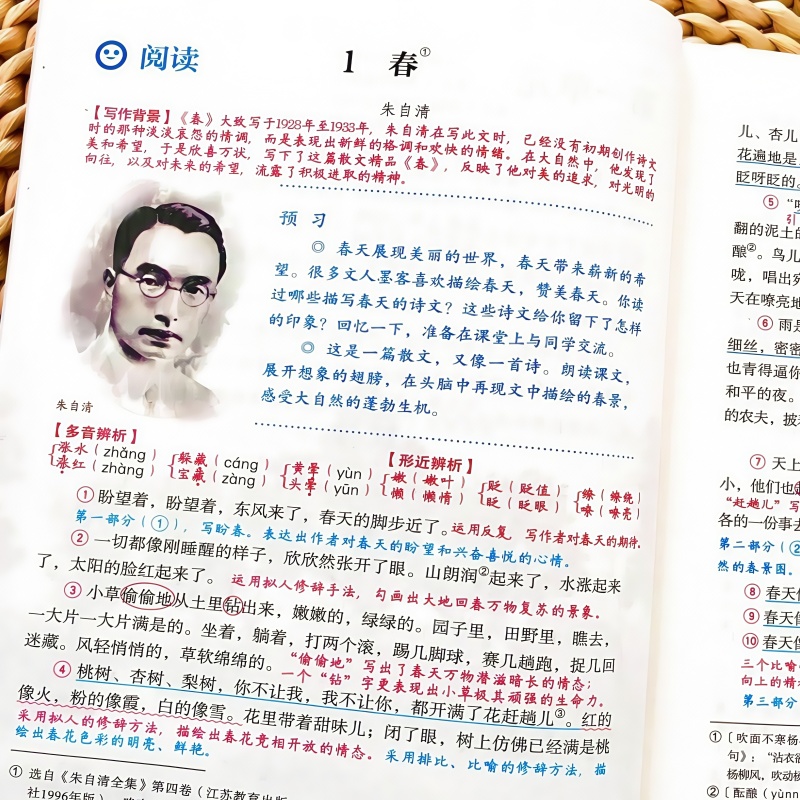 阅读
1 春①
朱自清
【写作背景】《春》大致写于1928年至1933年，朱自清在写此文时，已经没有初期创作诗文
时的那种淡淡哀怨的情调，而是表现出新鲜的格调和欢快的情绪。在大自然中，他发现了
美和希望，于是欣喜万状，写下了这篇散文精品《春》，反映了他对美的追求，对光明的
向往，以及对未来的希望，流露了积极进取的精神。
预习
◎ 春天展现美丽的世界，春天带来崭新的希
望。很多文人墨客喜欢描绘春天，赞美春天。你读
过哪些描写春天的诗文？这些诗文给你留下了怎样
的印象？回忆一下，准备在课堂上与同学交流。
◎ 这是一篇散文，又像一首诗。朗读课文，
展开想象的翅膀，在头脑中再现文中描绘的春景，
感受大自然的蓬勃生机。
朱自清
【多音辨析】
涨水（zhǎng）
涨红（zhàng）
躲藏（cáng）
宝藏（zàng）
黄晕（yùn）
头晕（yūn）
【形近辨析】
嫩（嫩叶）
懒（懒惰）
贬（贬值）
眨（眨眼）
缭（缭绕）
嘹（嘹亮）
①盼望着，盼望着，东风来了，春天的脚步近了。运用反复，写作者对春天的期待。
第一部分（①），写盼春。表达出作者对春天的盼望和兴奋喜悦的心情。
②一切都像刚睡醒的样子，欣欣然张开了眼。山朗润②起来了，水涨起来
了，太阳的脸红起来了。运用拟人修辞手法，勾画出大地回春万物复苏的景象。
③小草偷偷地从土里钻出来，嫩嫩的，绿绿的。园子里，田野里，瞧去，
一大片一大片满是的。坐着，躺着，打两个滚，踢几脚球，赛几趟跑，捉几回
迷藏。风轻悄悄的，草软绵绵的。
“偷偷地”写出了春天万物潜滋暗长的情态；
一个“钻”字更表现出小草极其顽强的生命力。
④桃树、杏树、梨树，你不让我，我不让你，都开满了花赶趟儿③。红的
像火，粉的像霞，白的像雪。花里带着甜味儿；闭了眼，树上仿佛已经满是桃
采用拟人的修辞方法，描绘出春花竞相开放的情态。采用排比、比喻的修辞方法，描
绘出春花色彩的明亮、鲜艳。
① 选自《朱自清全集》第四卷（江苏教育出版
社1996年版）
儿、杏儿
花遍地是
眨呀眨的
⑤“
引
翻的泥土的
酿②。鸟儿
咙，唱出宛
天在嘹亮地
⑥雨是
细丝，密密
也青得逼你
和平的夜。
的农夫，披
⑦天上
小，他们也
“赶趟儿”写
各的一份事去
第二部分（②
然的春景图。
⑧春天像
⑨春天像
⑩春天像
三个比喻
向上的精
第三部分
①〔吹面不寒杨
句〕：“沾衣欲
杨柳风，吹动杨
②〔酝酿（yùnn